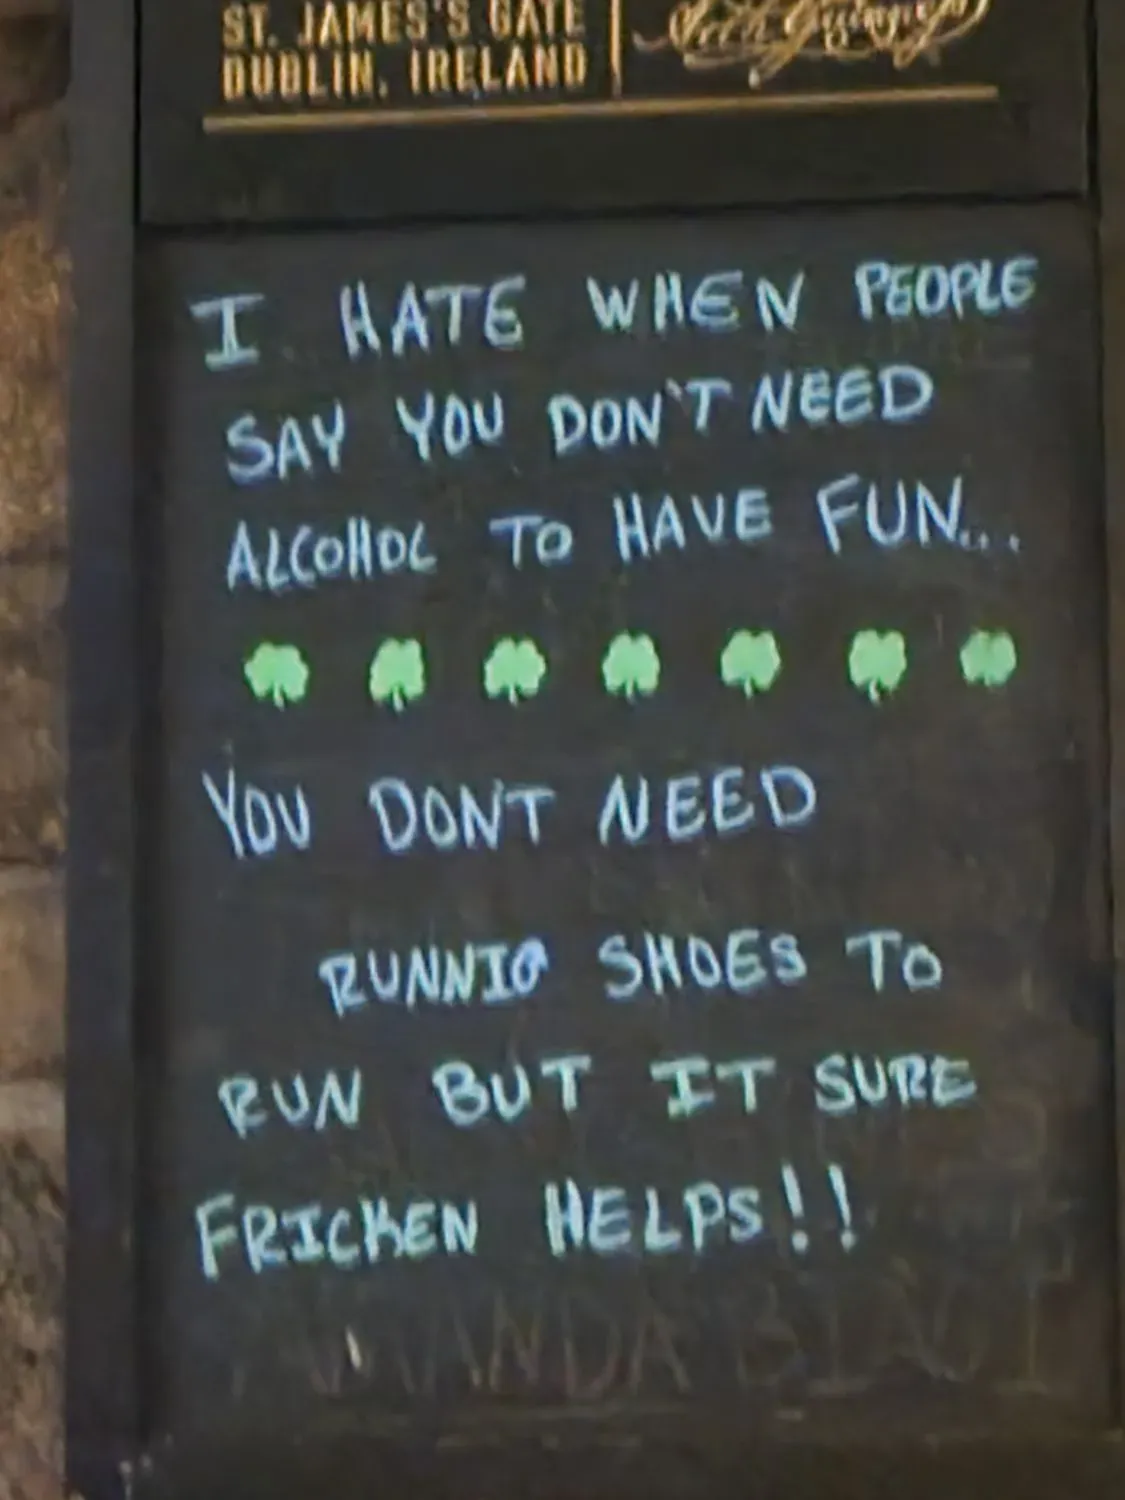 ST. JAMES'S GATE
DUBLIN, IRELAND
I HATE WHEN PEOPLE
SAY YOU DON'T NEED
ALCOHOL TO HAVE FUN...
YOU DON'T NEED
RUNNIG SHOES TO
RUN BUT IT SURE
FRICKEN HELPS!!